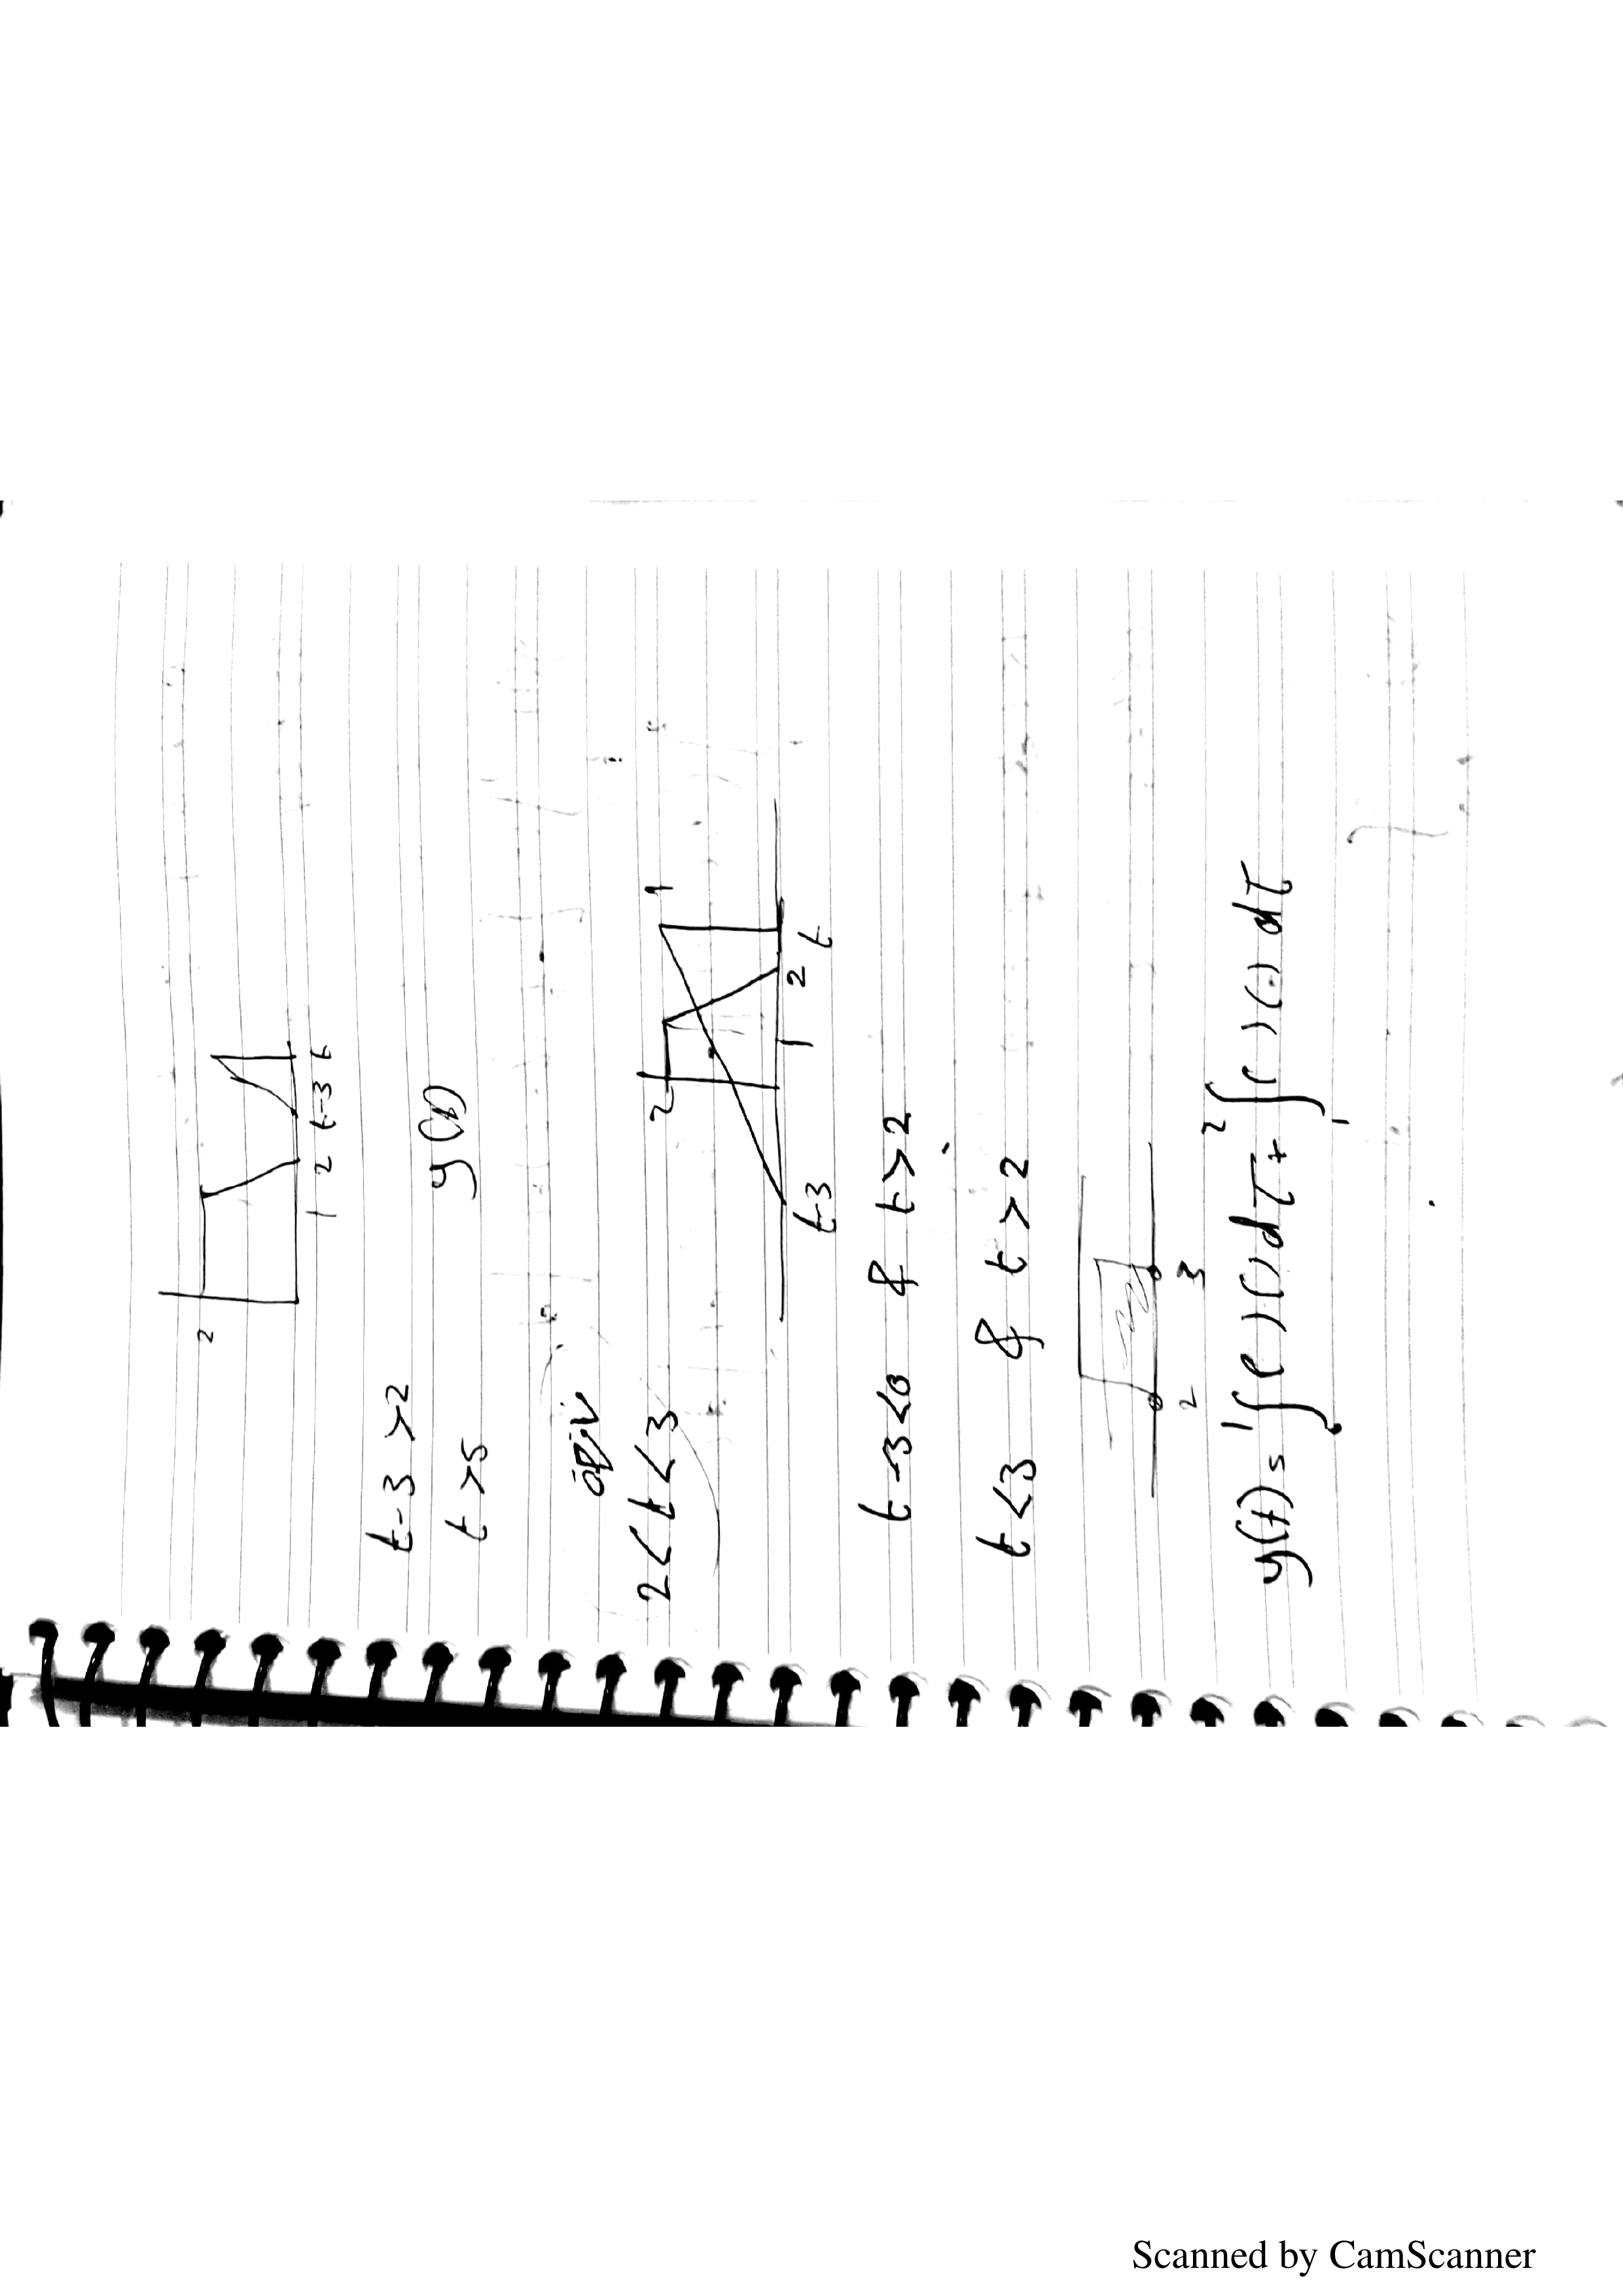 2
1 2 t-3 t
t-3 >2
t >5
2<t<3
2 1
t-3 1 2 t
t-3<0 & t>2
t<3 & t>2
2 3
y(t)= ∫₀¹( )( )dτ + ∫₁²( )( ) dτ
Scanned by CamScanner